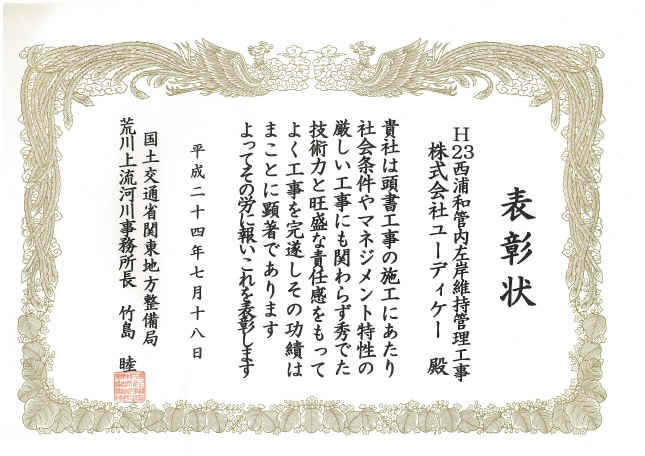 表彰状
H23西浦和管内左岸維持管理工事
株式会社ユーディケー 殿
貴社は頭書工事の施工にあたり
社会条件やマネジメント特性の
厳しい工事にも関わらず秀でた
技術力と旺盛な責任感をもって
よく工事を完遂しその功績は
まことに顕著であります
よってその労に報いこれを表彰します
平成二十四年七月十八日
国土交通省関東地方整備局
荒川上流河川事務所長 竹島 睦